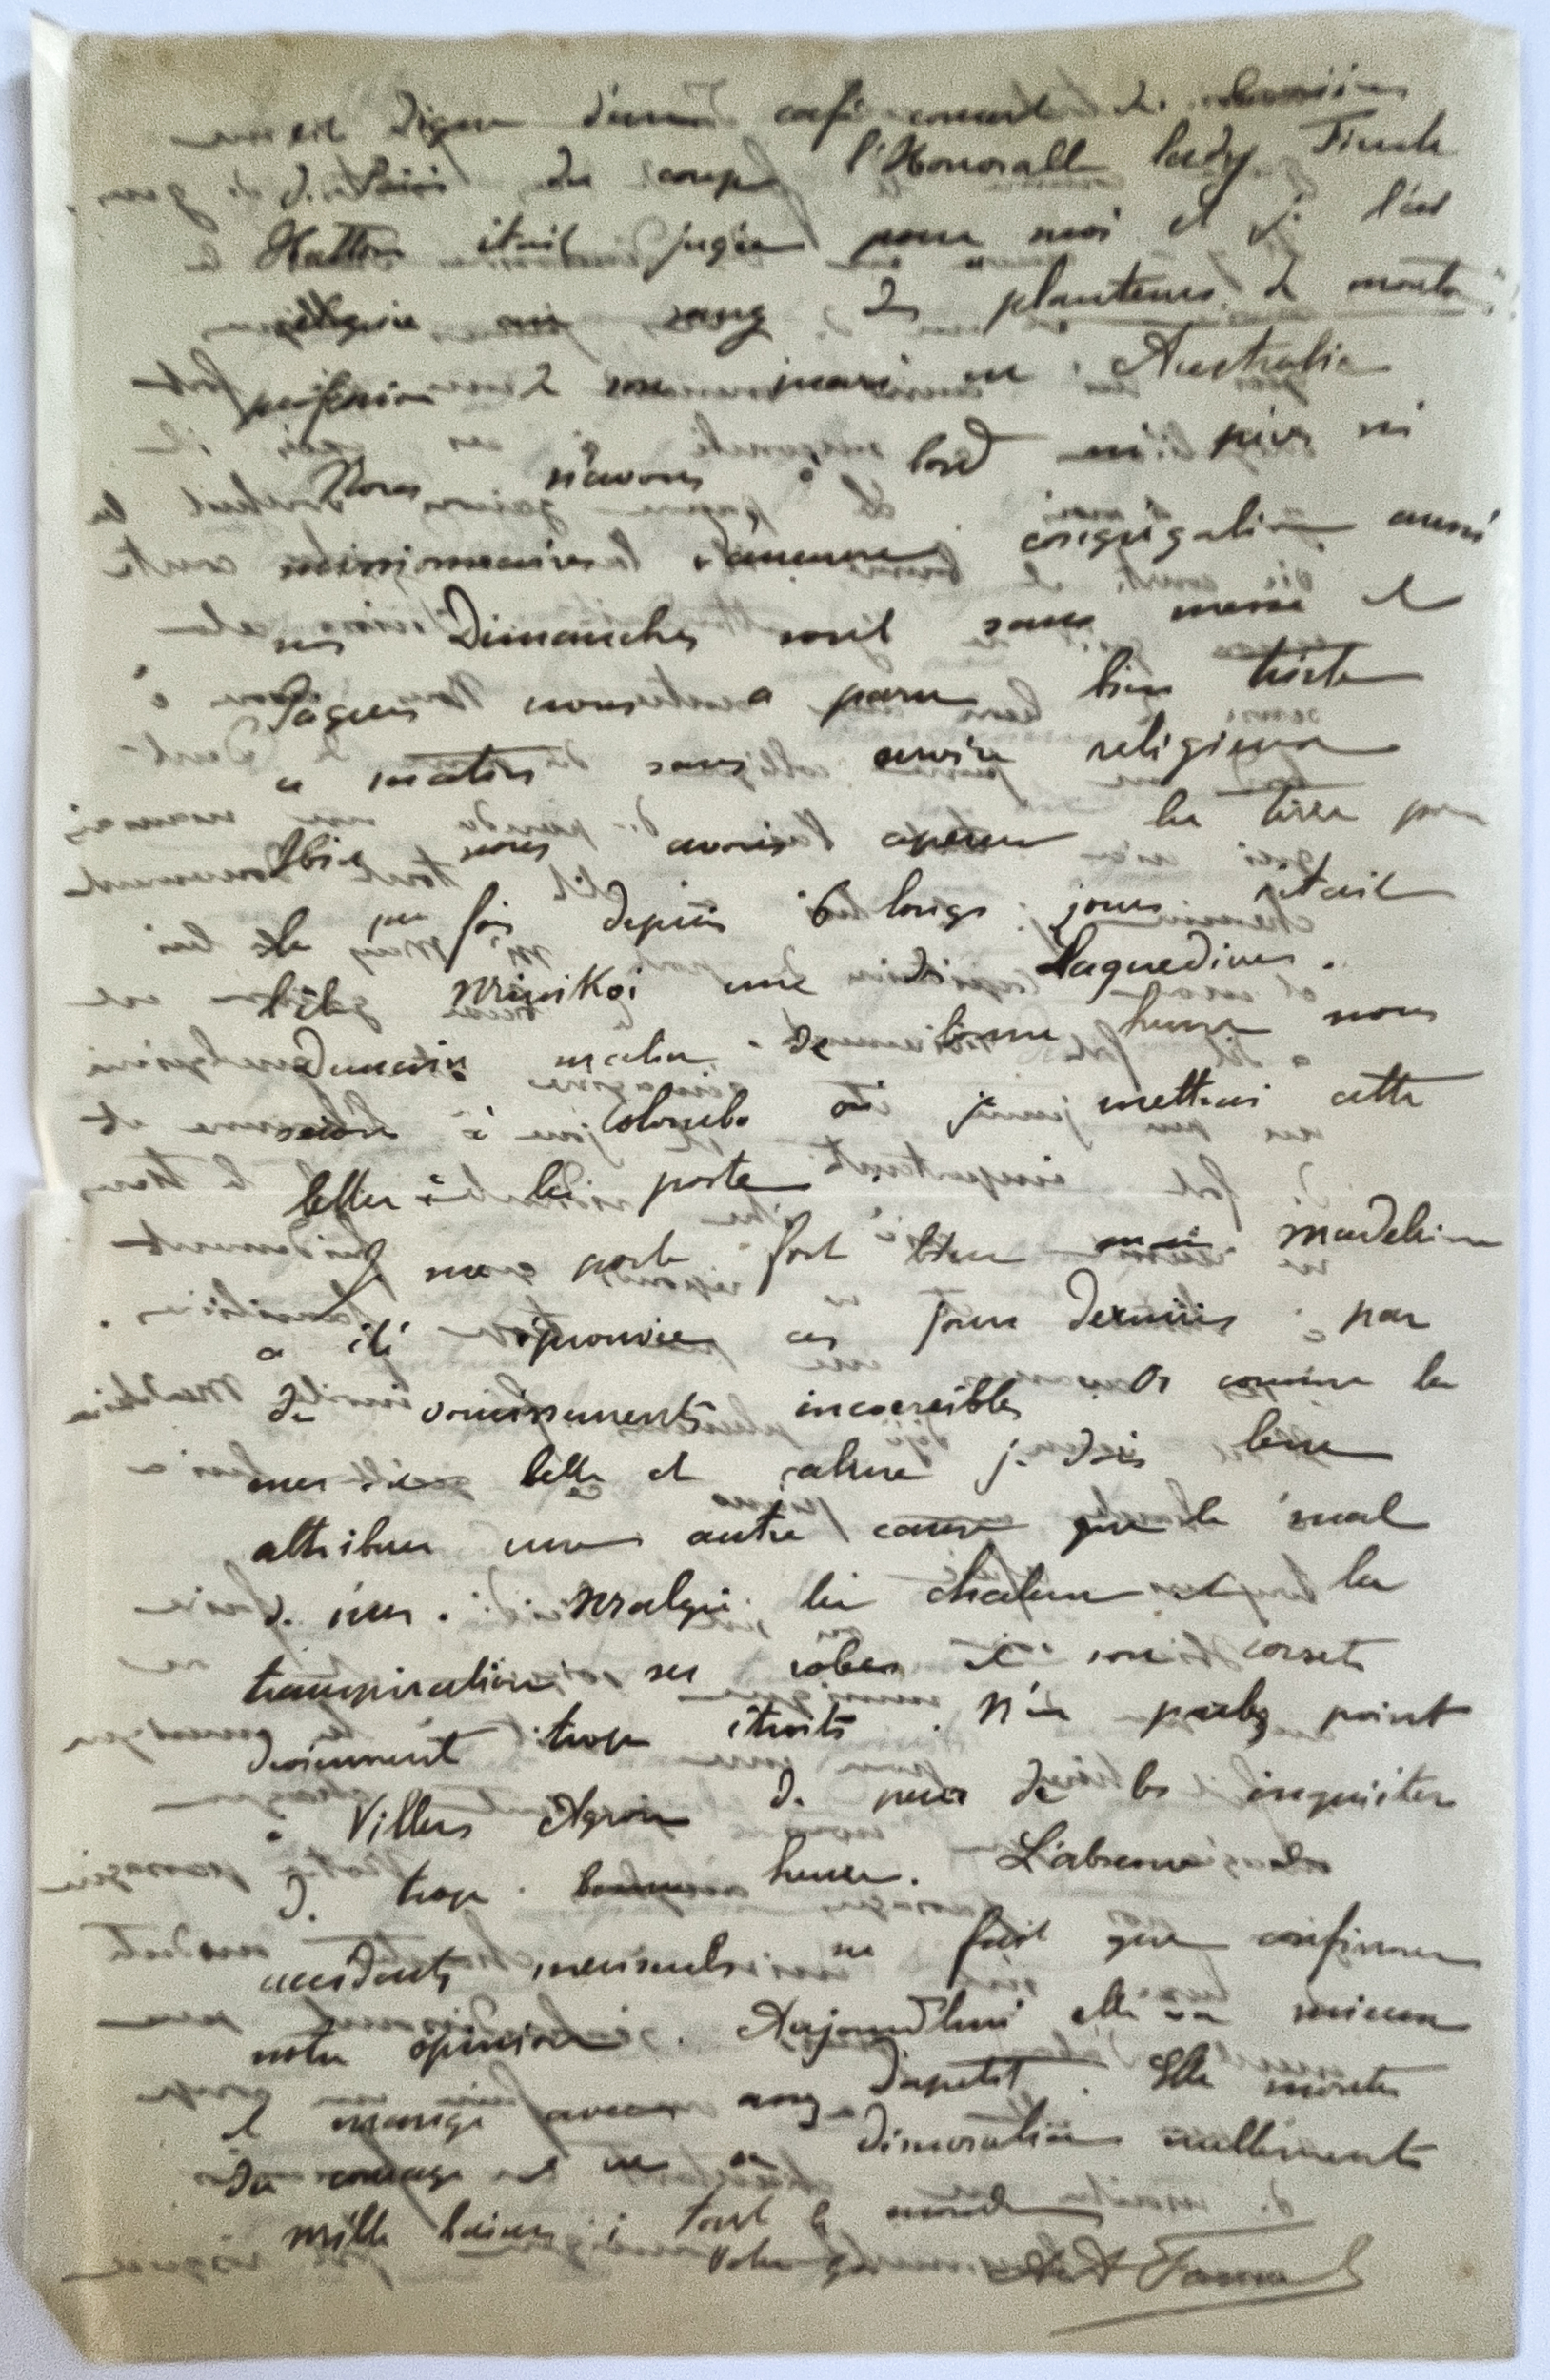 est digne d'un café concert de
du coup l'Honorall lady Finch
Hatton était jugée pour moi et je l'ai
reléguée au rang des planteurs de moutons
profession de son mari en Australie
Nous n'avons à bord ni père ni
missionnaires d'aucune congrégation aussi
nos Dimanches sont sans messe et
Pâques nous a paru bien triste
ce matin sans service religieux
Hier nous avons aperçu la terre pour
la 1re fois depuis 6 longs jours c'était
l'île Minikoï une des Laquedives.
Demain matin de bonne heure nous
serons à Colombo où je mettrai cette
lettre à la poste
Je me porte fort bien mais Madeleine
a été éprouvée ces jours derniers par
des vomissements incoercibles. Or comme la
mer est belle et calme je dois bien
attribuer une autre cause que le mal
de mer. Malgré la chaleur et la
transpiration ses robes et son corset
deviennent trop étroits. N'en parlez point
à Villers Agron de peur de les inquiéter
de trop bonne heure. L'absence
accidents mensuels ne fait que confirmer
notre opinion. Aujourd'hui elle va mieux
et mange avec assez d'apetit. Elle montre
du courage et ne se démoralise nullement
Mille baisers à tout le monde
Votre